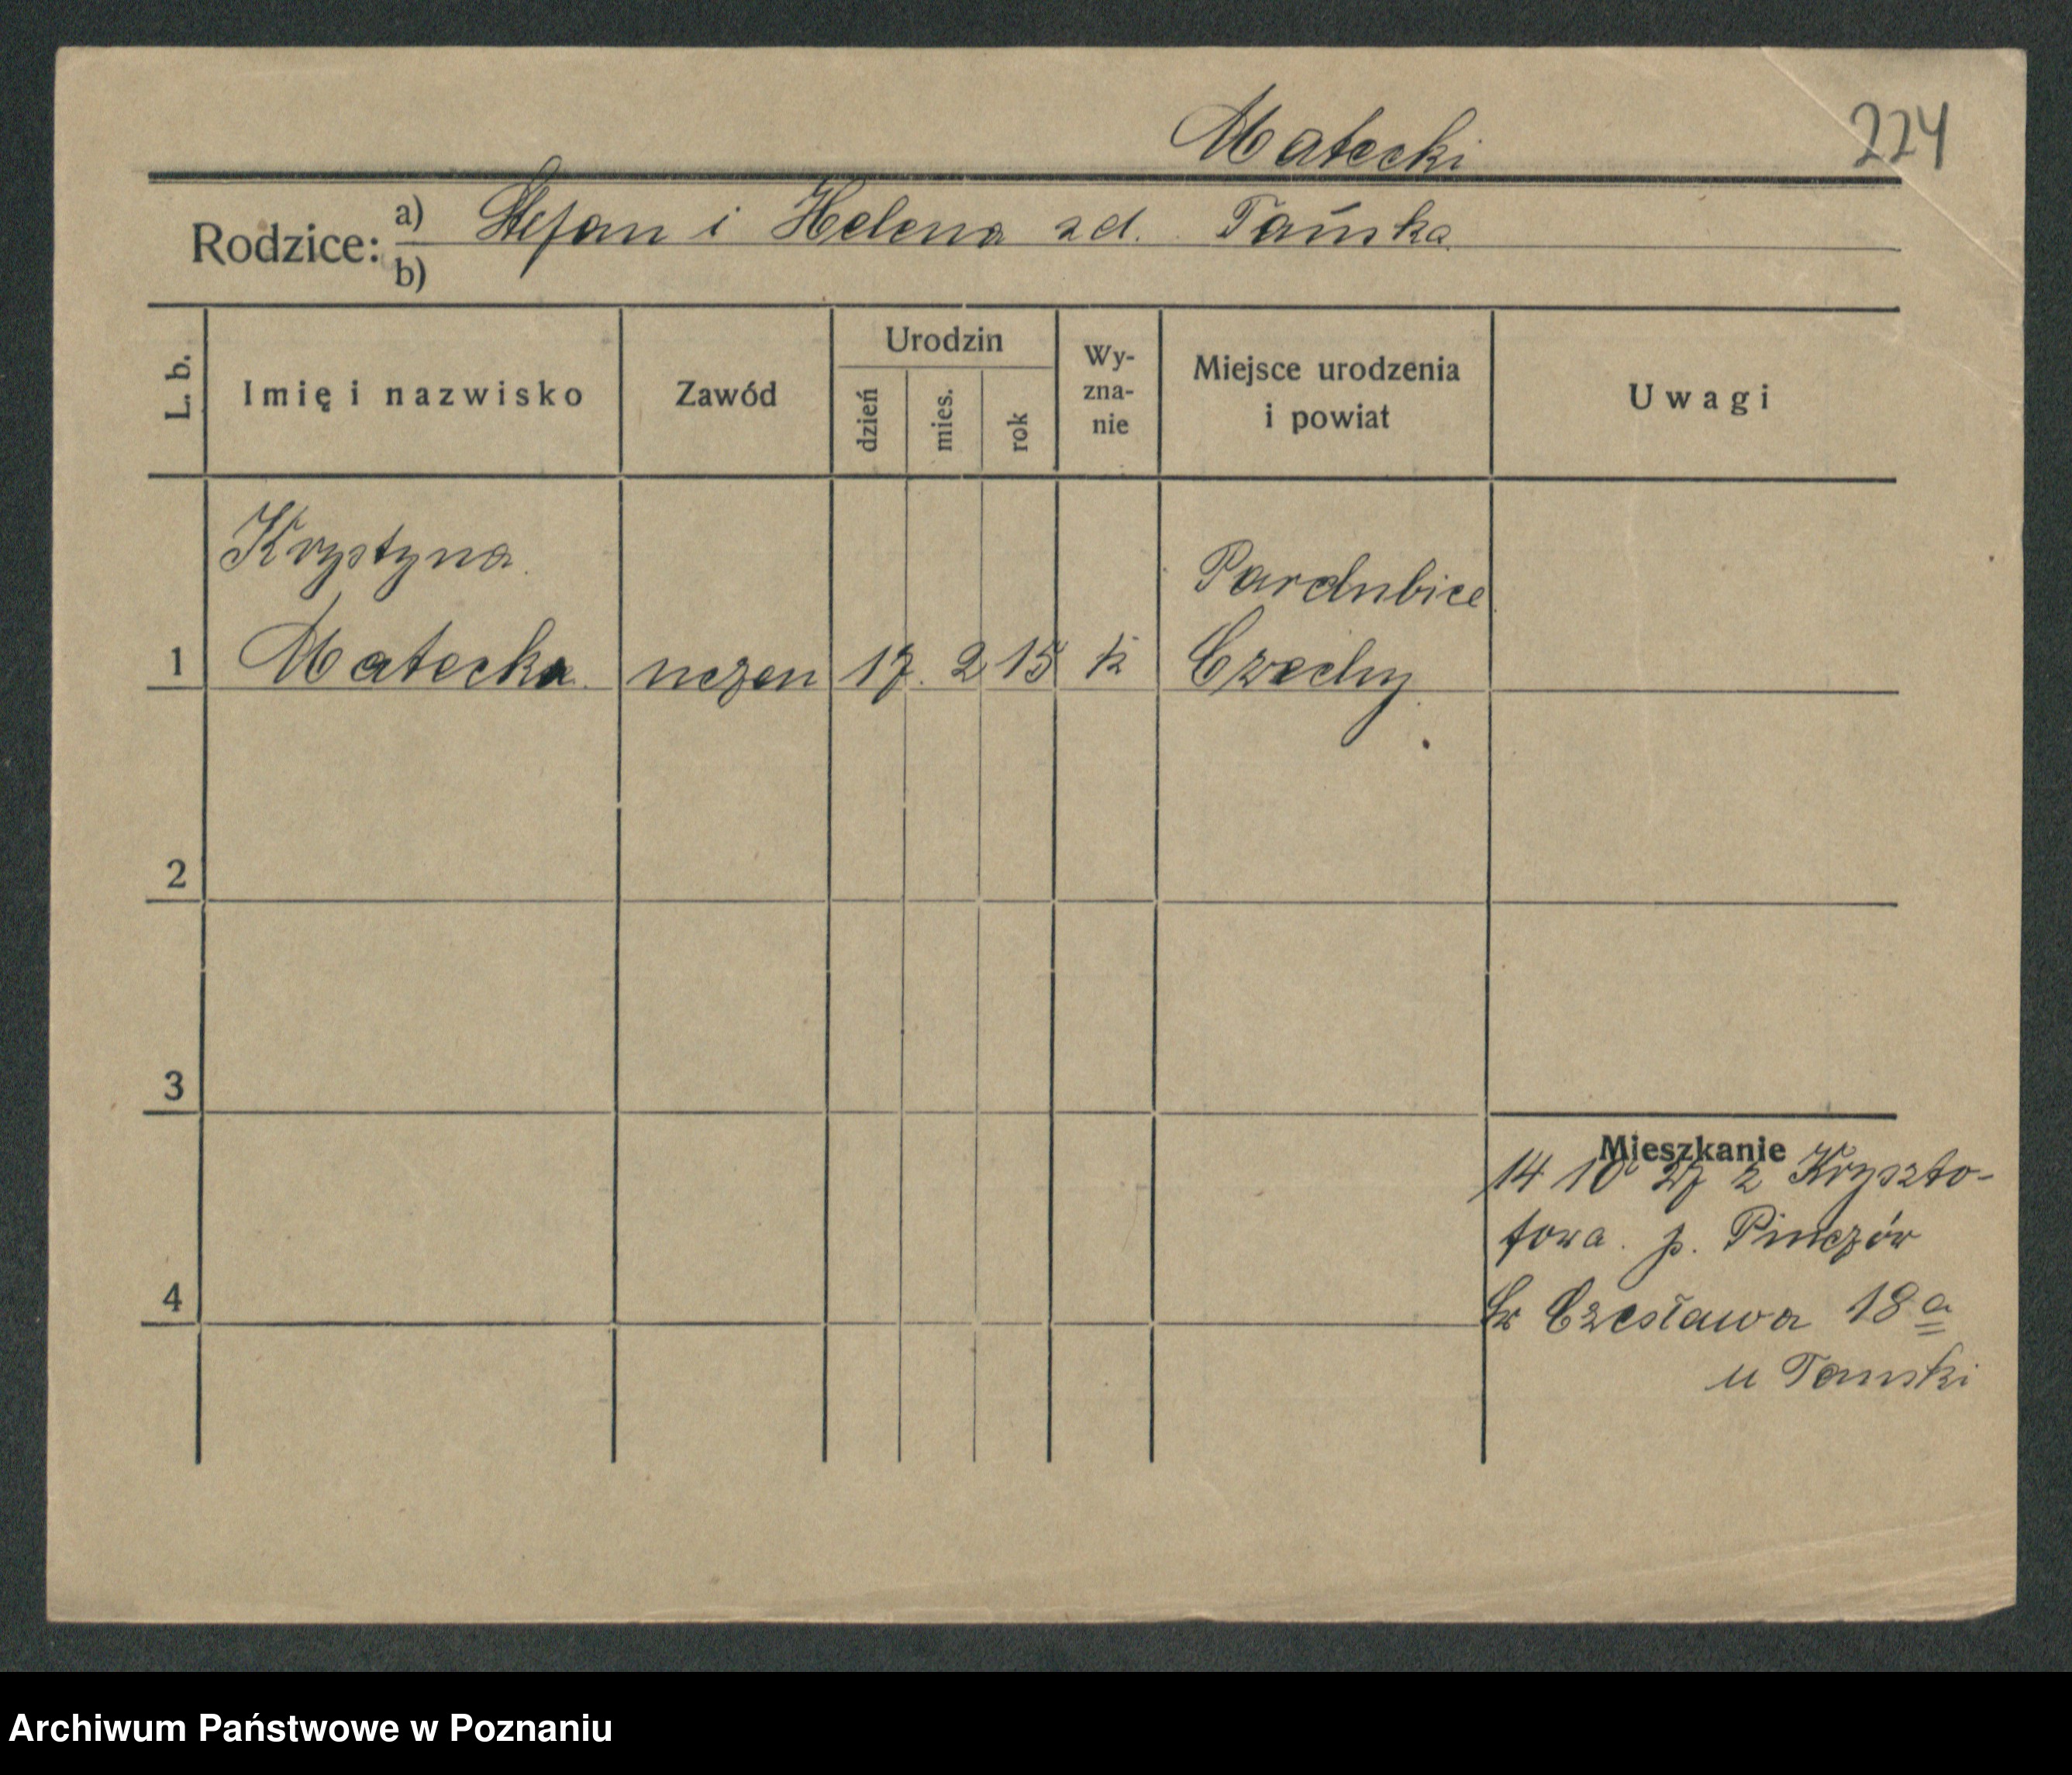 Małecki
224
Rodzice: a) Stefan i Helena zd. Tańska
b)
L. b. Imię i nazwisko Zawód Urodzin dzień mies. rok Wy-zna-nie Miejsce urodzenia i powiat Uwagi
Krystyna Pardubice
1 Małecka uczen 17. 2 15 k Czechy
2
3
Mieszkanie
14 10 27 z Kryszto-
fowa. p. Pinczów
4 Św Czesława 18 a
u Tanski
Archiwum Państwowe w Poznaniu